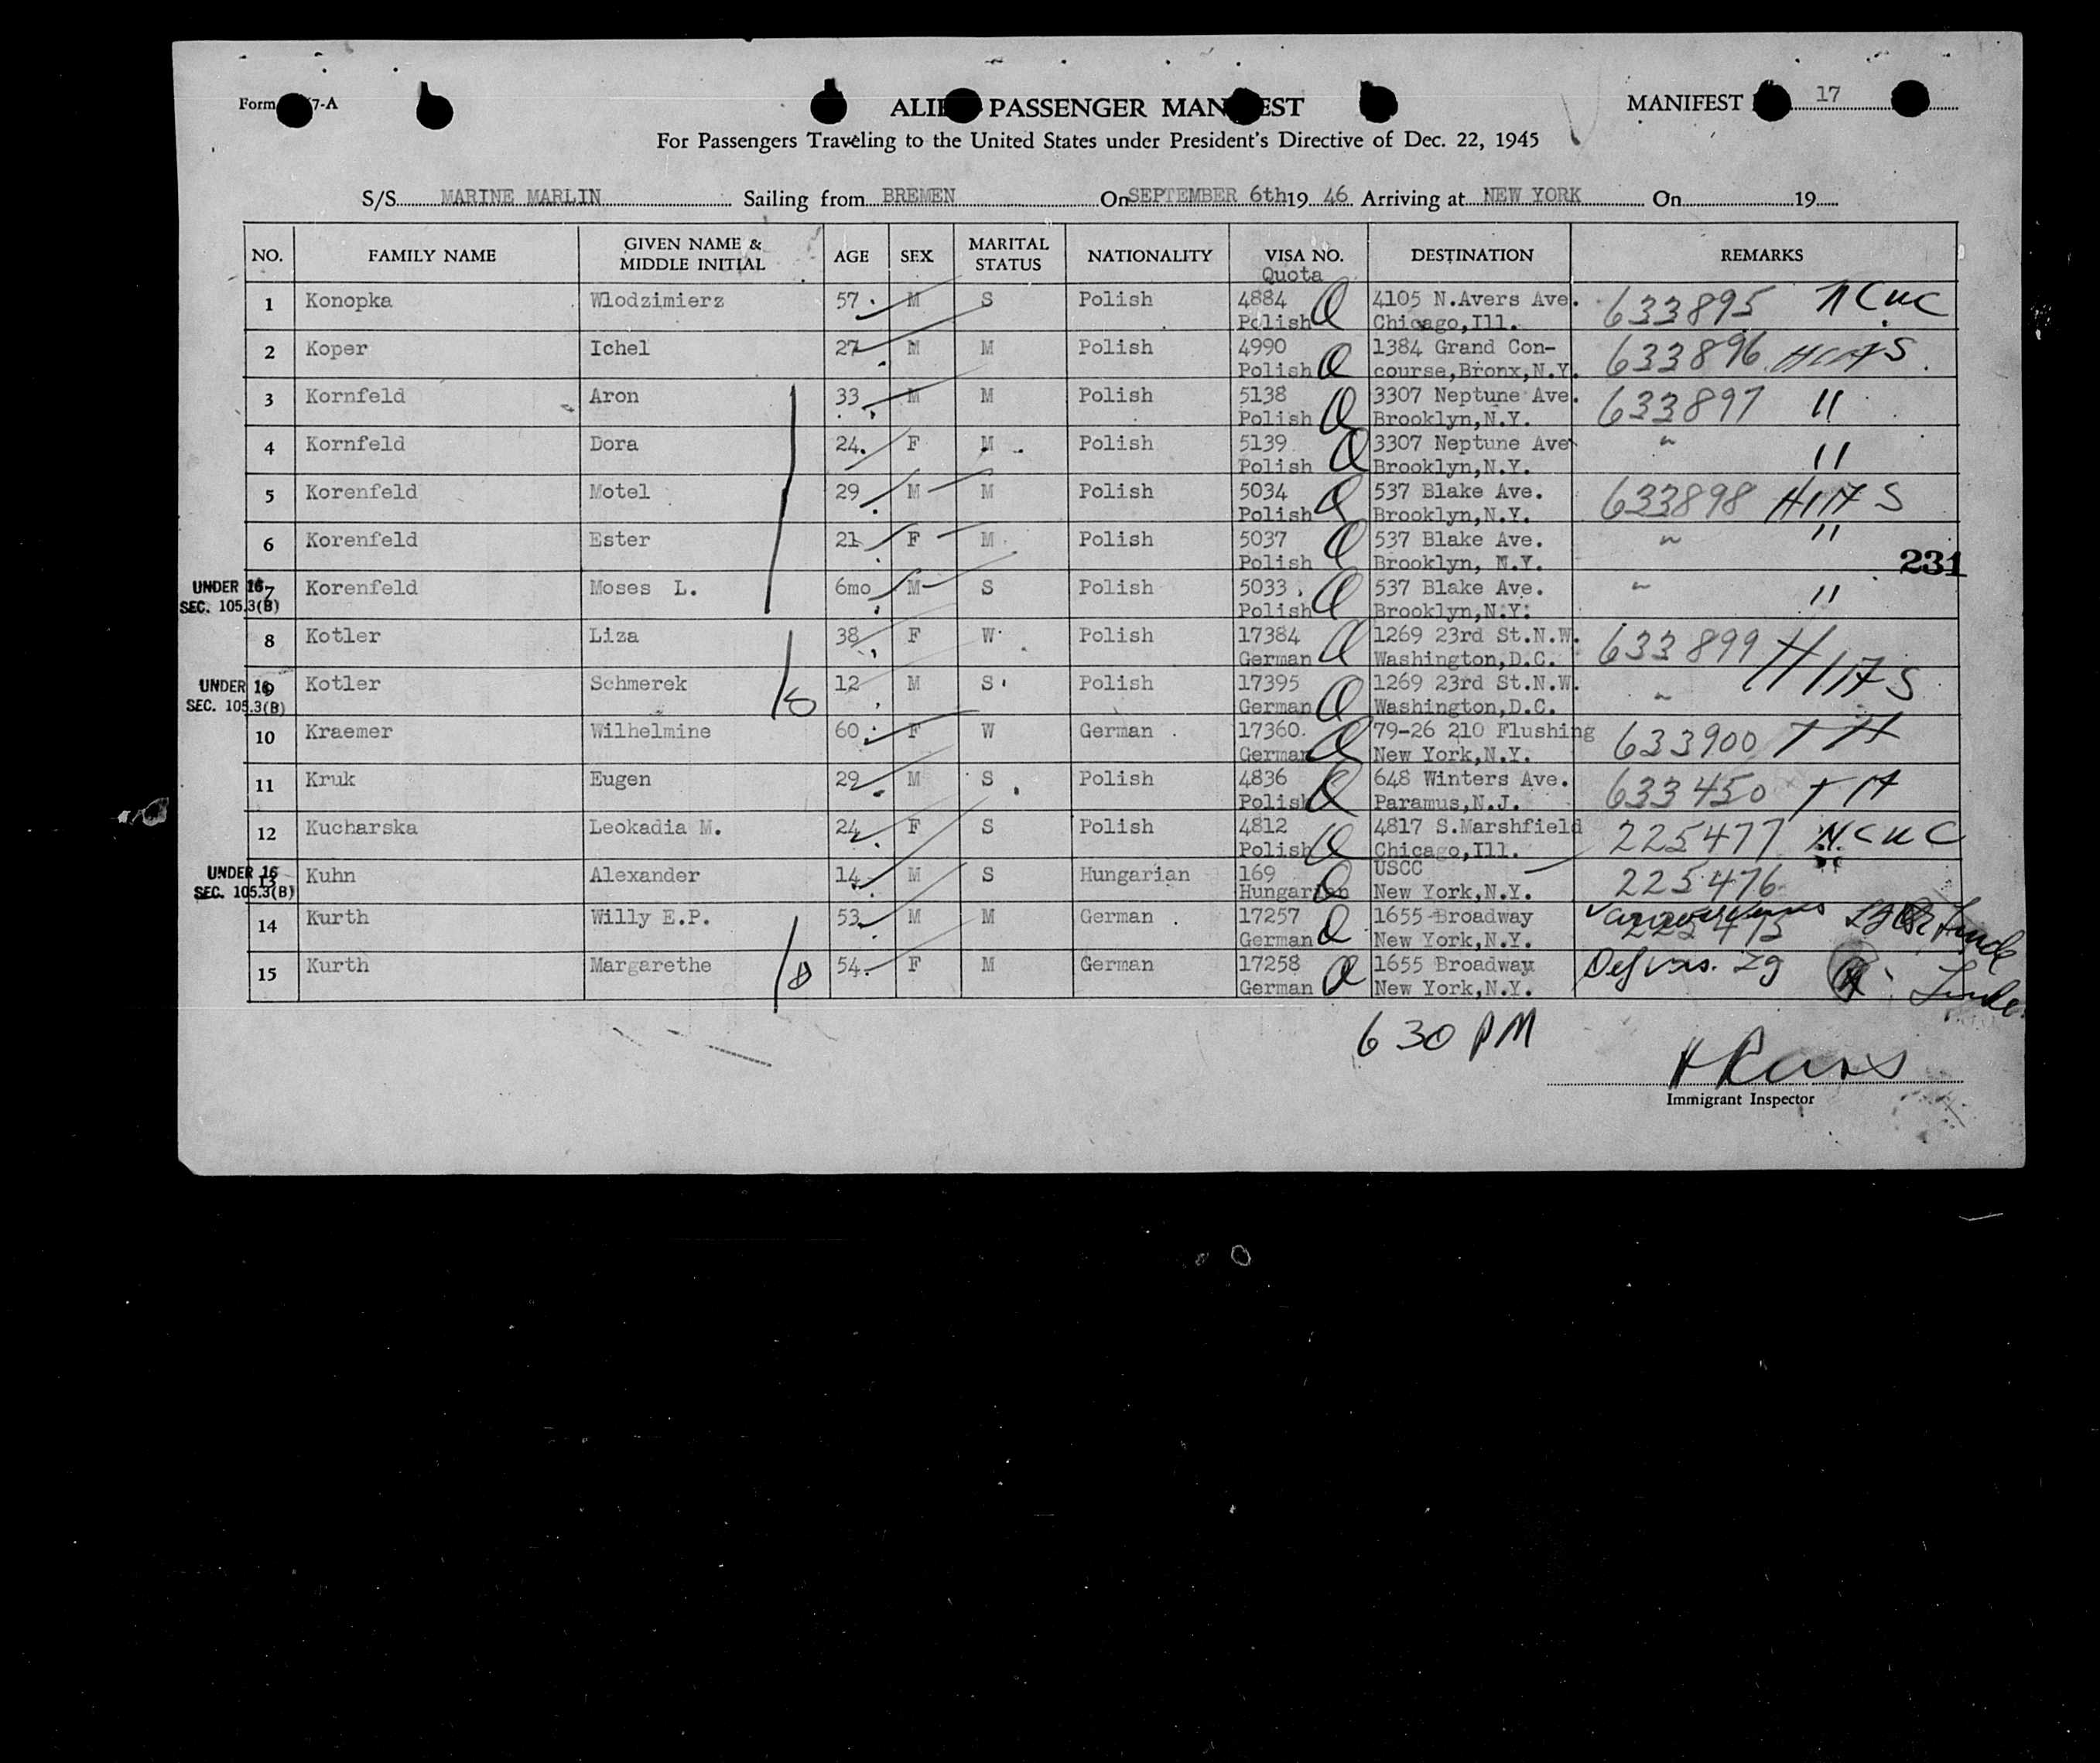 Form 7-A
ALIEN PASSENGER MANIFEST
MANIFEST 17
For Passengers Traveling to the United States under President's Directive of Dec. 22, 1945
S/S MARINE MARLIN Sailing from BREMEN On SEPTEMBER 6th 19 46 Arriving at NEW YORK On 19
NO. FAMILY NAME GIVEN NAME & MIDDLE INITIAL AGE SEX MARITAL STATUS NATIONALITY VISA NO. Quota DESTINATION REMARKS
1 Konopka Wlodzimierz 57 M S Polish 4884 4105 N.Avers Ave. 633895 NCWC
Polish Q Chicago,Ill.
2 Koper Ichel 27 M M Polish 4990 1384 Grand Con- 633896 HIAS
Polish Q course,Bronx,N.Y.
3 Kornfeld Aron 33 M M Polish 5138 3307 Neptune Ave. 633897 "
Polish Q Brooklyn,N.Y.
4 Kornfeld Dora 24. F M Polish 5139 3307 Neptune Ave " "
Polish Q Brooklyn,N.Y.
5 Korenfeld Motel 29 M M Polish 5034 537 Blake Ave. 633898 HIAS
Polish Q Brooklyn,N.Y.
6 Korenfeld Ester 21 F M Polish 5037 537 Blake Ave. " "
Polish Q Brooklyn, N.Y.
231
UNDER 16 7 Korenfeld Moses L. 6mo M S Polish 5033 537 Blake Ave. " "
SEC. 105.3(B) Polish Q Brooklyn,N.Y.
8 Kotler Liza 38 F W Polish 17384 1269 23rd St.N.W. 633899 HIAS
German Q Washington,D.C.
UNDER 16 9 Kotler Schmerek 12 M S Polish 17395 1269 23rd St.N.W. "
SEC. 105.3(B) German Q Washington,D.C.
10 Kraemer Wilhelmine 60 F W German 17360 79-26 210 Flushing 633900 TH
German Q New York,N.Y.
11 Kruk Eugen 29 M S Polish 4836 648 Winters Ave. 633450
Polish Q Paramus,N.J.
12 Kucharska Leokadia M. 24 F S Polish 4812 4817 S.Marshfield 225477 NCWC
Polish Q Chicago,Ill.
UNDER 16 13 Kuhn Alexander 14 M S Hungarian 169 USCC 225476
SEC. 105.3(B) Hungarian Q New York,N.Y.
14 Kurth Willy E.P. 53 M M German 17257 1655 Broadway
German Q New York,N.Y. 225475
15 Kurth Margarethe 54 F M German 17258 1655 Broadway
German Q New York,N.Y.
6 30 PM
Immigrant Inspector